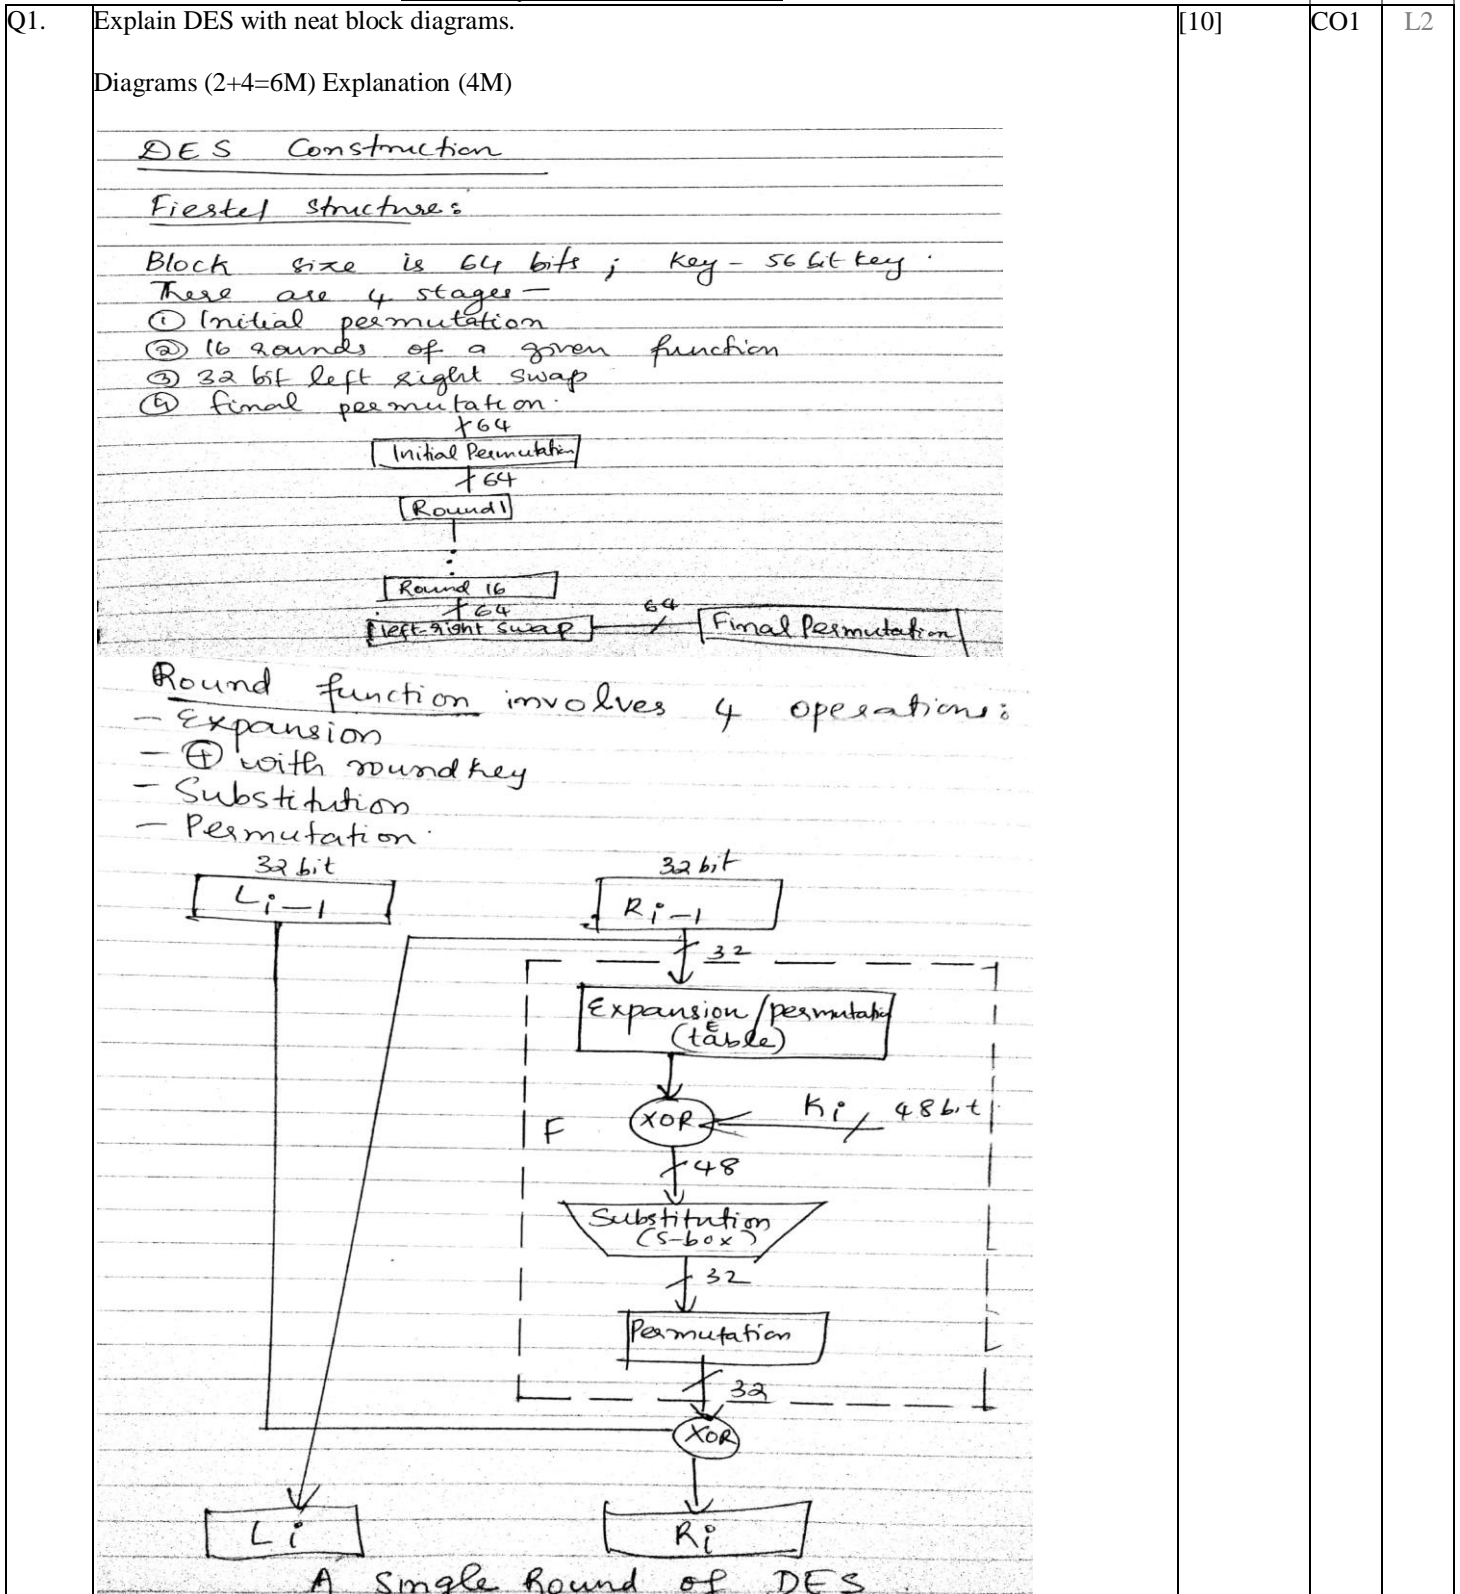 Q1. Explain DES with neat block diagrams. [10] CO1 L2
Diagrams (2+4=6M) Explanation (4M)
DES Construction
Fiestel structure:
Block size is 64 bits ; Key - 56 bit key.
There are 4 stages —
① Initial permutation
② 16 rounds of a given function
③ 32 bit left right swap
④ final permutation.
64
Initial Permutation
64
Round 1
Round 16
64
left-right swap 64 Final Permutation
Round function involves 4 operations:
- Expansion
- ⊕ with round key
- Substitution
- Permutation.
32 bit 32 bit
Li-1 Ri-1
32
Expansion/permutatio
(E table)
F XOR Ki 48 bit
48
Substitution
(S-box)
32
Permutation
32
XOR
Li Ri
A Single Round of DES